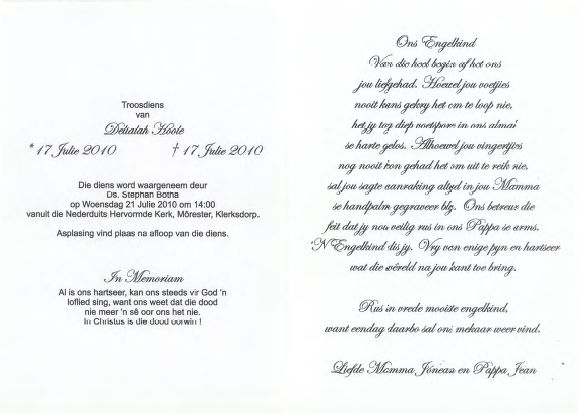 Troosdiens
van
Delialah Hoole
* 17 Julie 2010 † 17 Julie 2010
Die diens word waargeneem deur
Ds. Stephan Botha
op Woensdag 21 Julie 2010 om 14:00
vanuit die Nederduits Hervormde Kerk, Môrester, Klerksdorp..
Asplasing vind plaas na afloop van die diens.
In Memoriam
Al is ons hartseer, kan ons steeds vir God 'n
loflied sing, want ons weet dat die dood
nie meer 'n sê oor ons het nie.
In Christus is die dood oorwin !
Ons Engelkind
Van die heel begin af het ons
jou liefgehad. Hoewel jou voetjies
nooit kans gekry het om te loop nie,
het jy tog diep voetspore in ons almal
se harte gelos. Alhoewel jou vingertjies
nog nooit kon gehad het om uit te reik nie,
sal jou sagte aanraking altyd in jou Mamma
se handpalm gegraveer bly. Ons betreur die
feit dat jy nou veilig rus in ons Pappa se arms.
'N Engelkind dis jy. Vry van enige pyn en hartseer
wat die wêreld na jou kant toe bring.
Rus in vrede mooiste engelkind,
want eendag daarbo sal ons mekaar weer vind.
Liefde Mamma en Pappa Jean